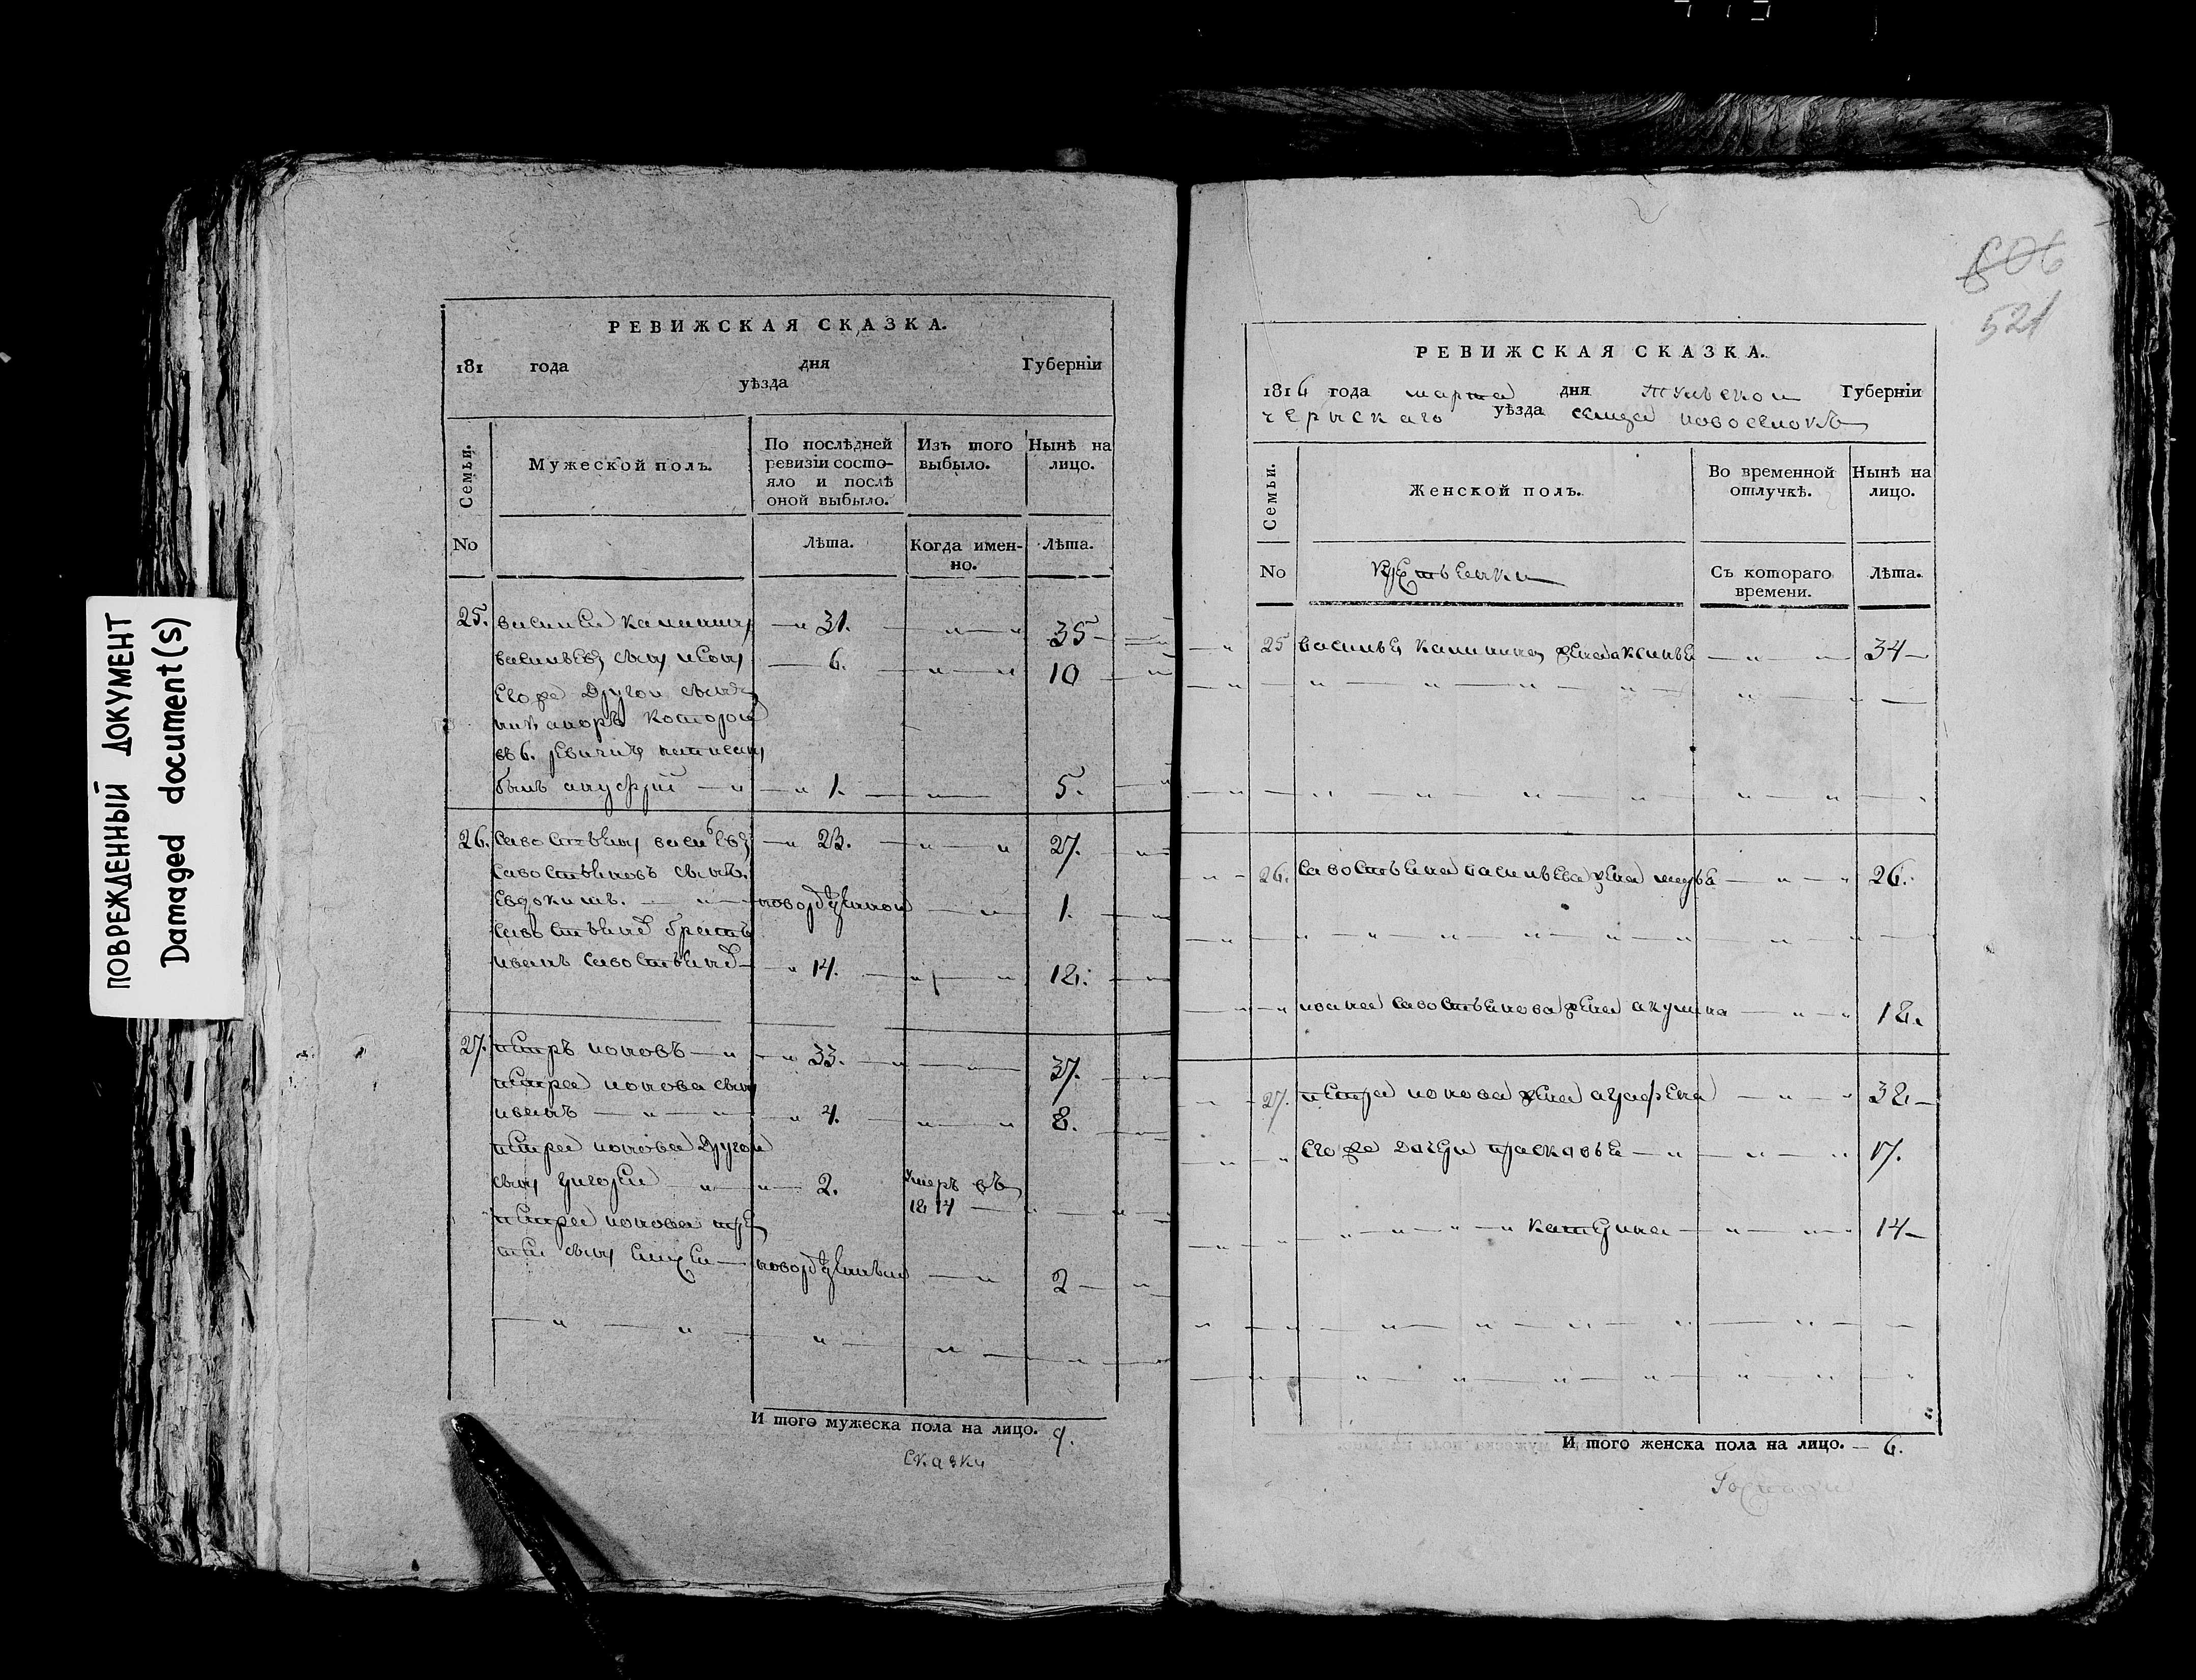 ПОВРЕЖДЕННЫЙ ДОКУМЕНТ
Damaged document(s)
РЕВИЖСКАЯ СКАЗКА.
181 года дня Губерніи
уѣзда
Семьи.
Мужеской полъ.
По послѣдней ревизіи состо-
яло и послѣ
оной выбыло.
Изъ того
выбыло.
Нынѣ на
лицо.
No
Лѣта.
Когда имен-
но.
Лѣта.
25. василей калининъ 31. 35
васильевъ сынъ 6. 10
Его же Другой сынъ
никаноръ которой
въ 6. ревизіи написанъ
былъ ануфрій 1. 5.
26. савостьянъ васильевъ 23. 27.
савостьяновъ сынъ
Евдокимъ. новорожденной 1.
савостьяновъ братъ
иванъ савостьяновъ 14. 18.
27. петръ поповъ 33. 37.
петра попова сынъ
иванъ 4. 8.
петра попова Другой
сынъ григорей 2. Умеръ въ
1814
петра попова тре
тей сынъ новорожденный 2
И того мужеска пола на лицо. 9.
Сказки
606
521
РЕВИЖСКАЯ СКАЗКА.
1816 года марта дня тульской Губерніи
чернскаго уѣзда сельца новоселокъ
Семьи.
Женской полъ.
Во временной
отлучкѣ.
Нынѣ на
лицо.
No
Съ котораго
времени.
Лѣта.
25 василья калинина жена аксинья 34
26. савостьяна васильева жена марья 26.
ивана савостьянова жена акулина 18.
27. петра попова жена аграфена 32
Его же дочери прасковья 17.
катерина 14
И того женска пола на лицо. 6.